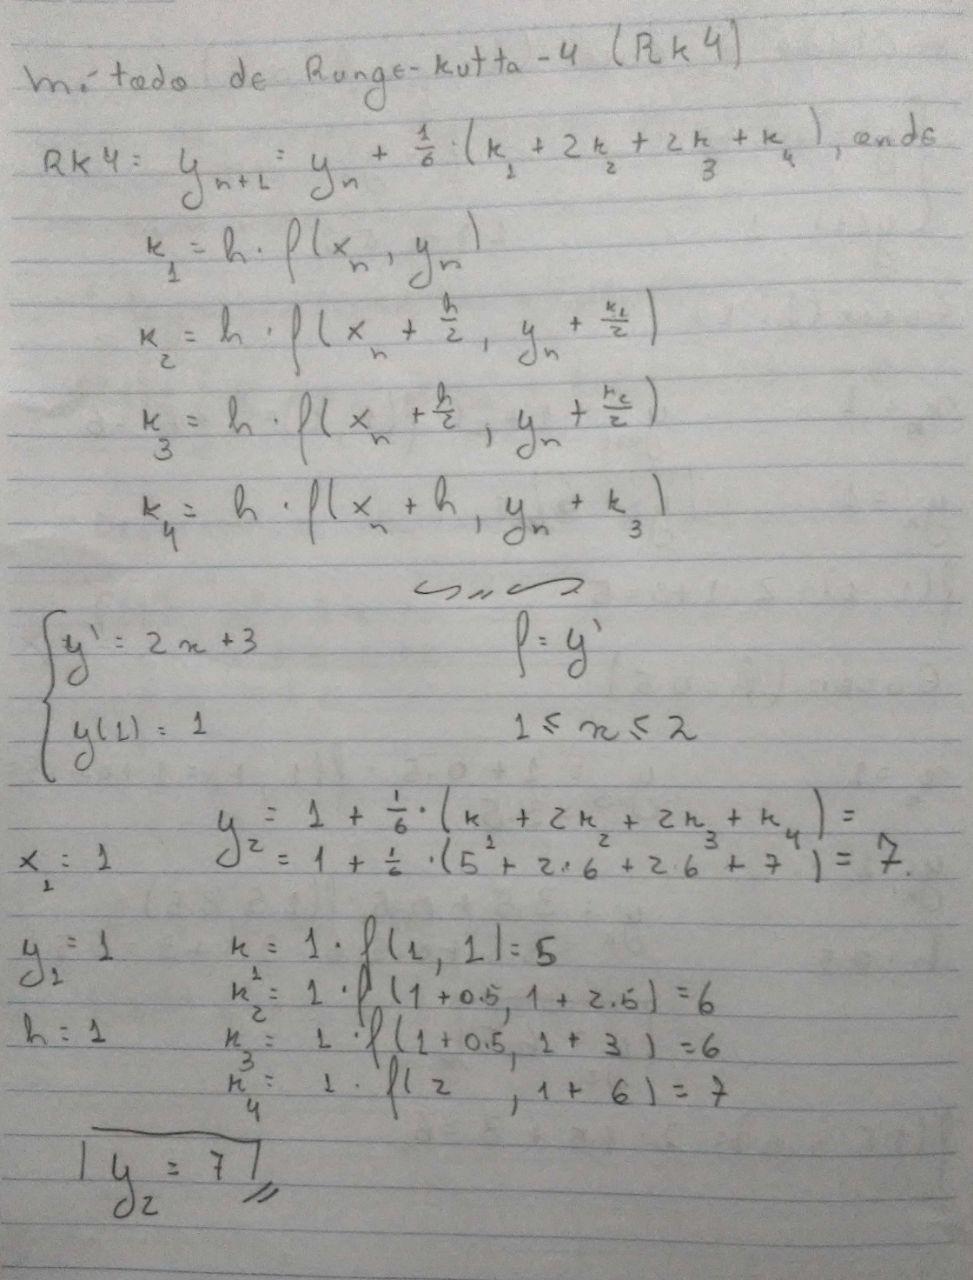 método de Runge-Kutta-4 (Rk4)
RK4: y_{n+1} = y_n + 1/6 · (k_1 + 2k_2 + 2k_3 + k_4), onde
k_1 = h · f(x_n, y_n)
k_2 = h · f(x_n + h/2, y_n + k_1/2)
k_3 = h · f(x_n + h/2, y_n + k_2/2)
k_4 = h · f(x_n + h, y_n + k_3)
y' = 2x + 3 f = y'
y(1) = 1 1 ≤ x ≤ 2
y_2 = 1 + 1/6 · (k_1 + 2k_2 + 2k_3 + k_4) =
x_1 = 1 = 1 + 1/6 · (5 + 2·6 + 2·6 + 7) = 7.
y_1 = 1 k_1 = 1 · f(1, 1) = 5
k_2 = 1 · f(1 + 0.5, 1 + 2.5) = 6
h = 1 k_3 = 1 · f(1 + 0.5, 1 + 3) = 6
k_4 = 1 · f(2, 1 + 6) = 7
y_2 = 7